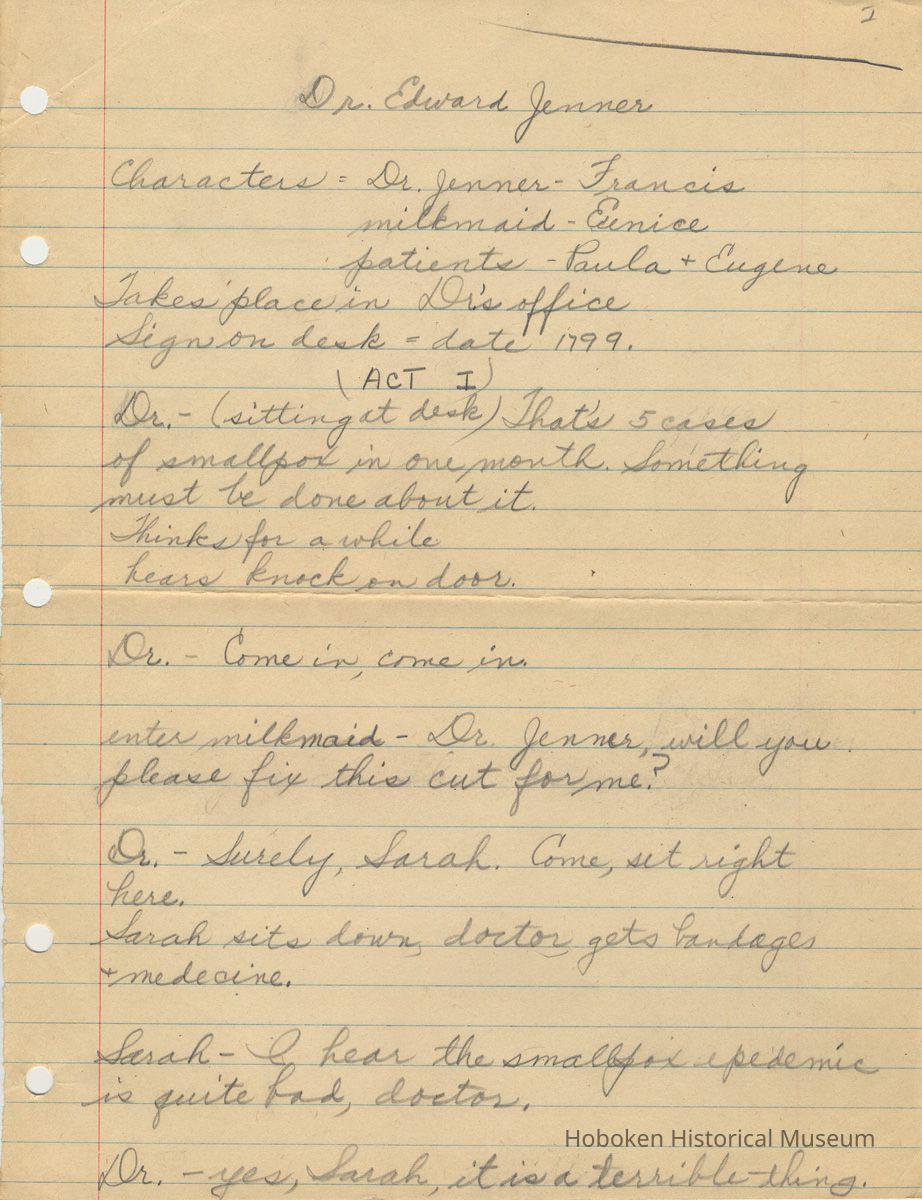 I
Dr. Edward Jenner
Characters = Dr. Jenner - Francis
milkmaid - Eunice
patients - Paula + Eugene
Takes place in Dr's office
Sign on desk = date 1799.
(ACT I)
Dr. - (sitting at desk) That's 5 cases
of smallpox in one month. Something
must be done about it.
Thinks for a while
hears knock on door.
Dr. - Come in, come in.
enter milkmaid - Dr. Jenner, will you
please fix this cut for me?
Dr. - Surely, Sarah. Come, sit right
here.
Sarah sits down, doctor gets bandages
+ medecine.
Sarah - I hear the smallpox epedemic
is quite bad, doctor.
Hoboken Historical Museum
Dr. - yes, Sarah, it is a terrible thing.